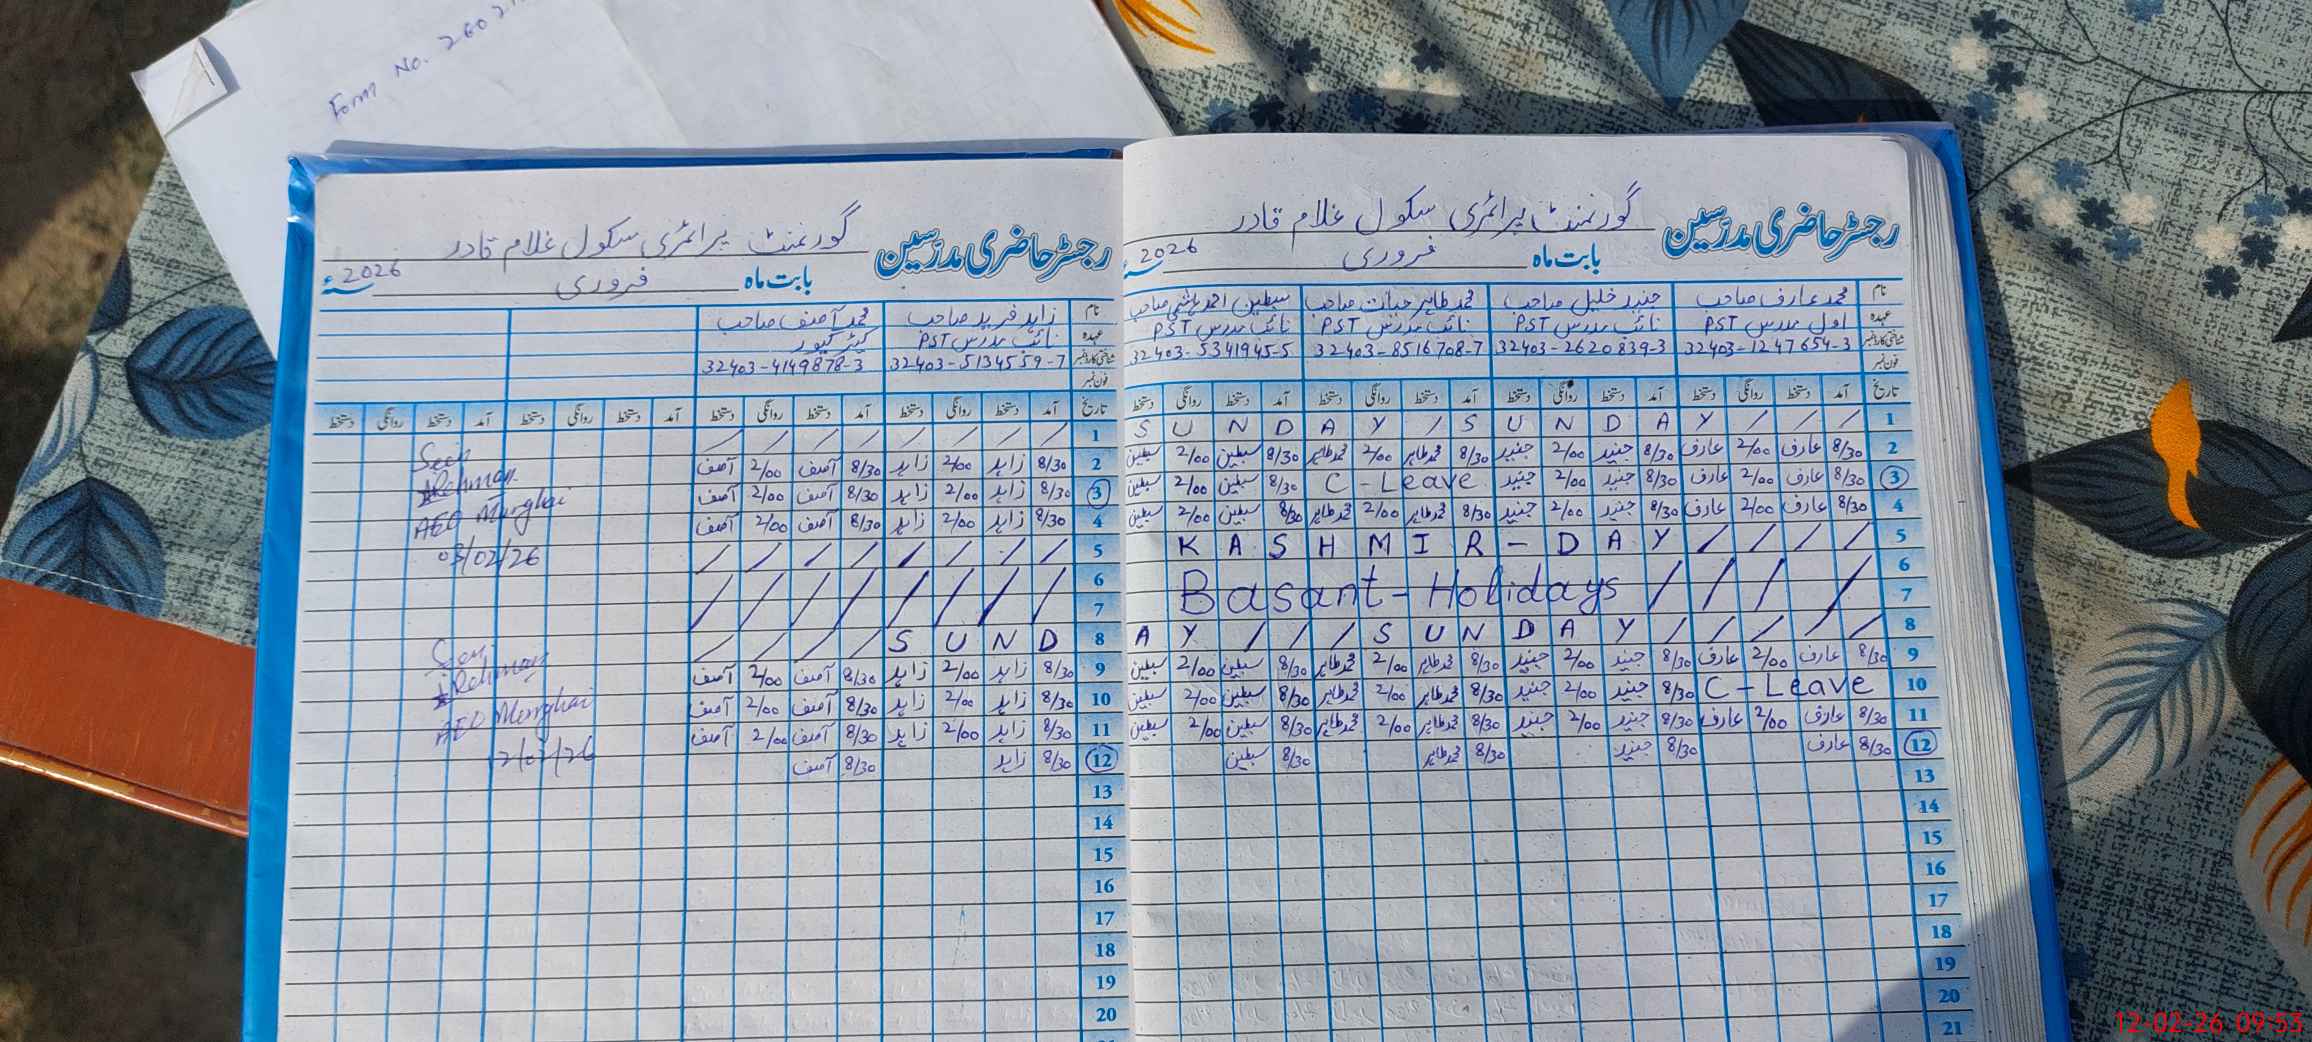 Form No. 260
رجسٹر حاضری مدرسین گورنمنٹ پرائمری سکول غلام قادر
بابت ماہ فروری 2026ء
نام محمد عارف صاحب جنید خلیل صاحب محمد طاہر حیات صاحب سبطین احمد ہاشمی صاحب
عہدہ اول مدرس PST نائب مدرس PST نائب مدرس PST نائب مدرس PST
شناختی کارڈ نمبر 32403-1247654-3 32403-2620839-3 32403-8516708-7 32403-5341945-5
فون نمبر
تاریخ آمد دستخط روانگی دستخط آمد دستخط روانگی دستخط آمد دستخط روانگی دستخط آمد دستخط روانگی دستخط
1 S U N D A Y / S U N D A Y / / /
2 8/30 عارف 2/00 عارف 8/30 جنید 2/00 جنید 8/30 محمد طاہر 2/00 محمد طاہر 8/30 سبطین 2/00 سبطین
3 8/30 عارف 2/00 عارف 8/30 جنید 2/00 جنید C-Leave 8/30 سبطین 2/00 سبطین
4 8/30 عارف 2/00 عارف 8/30 جنید 2/00 جنید 8/30 محمد طاہر 2/00 محمد طاہر 8/30 سبطین 2/00 سبطین
5 K A S H M I R - D A Y / / / /
6
Basant - Holidays / / / /
7
8 A Y / / / S U N D A Y / / / / /
9 8/30 عارف 2/00 عارف 8/30 جنید 2/00 جنید 8/30 محمد طاہر 2/00 محمد طاہر 8/30 سبطین 2/00 سبطین
10 C-Leave 8/30 جنید 2/00 جنید 8/30 محمد طاہر 2/00 محمد طاہر 8/30 سبطین 2/00 سبطین
11 8/30 عارف 2/00 عارف 8/30 جنید 2/00 جنید 8/30 محمد طاہر 2/00 محمد طاہر 8/30 سبطین 2/00 سبطین
12 8/30 عارف 8/30 جنید 8/30 محمد طاہر 8/30 سبطین
13
14
15
16
17
18
19
20
21
رجسٹر حاضری مدرسین گورنمنٹ پرائمری سکول غلام قادر
بابت ماہ فروری 2026ء
نام زاہد فرید صاحب محمد آصف صاحب
عہدہ نائب مدرس PST کیئر گیور
شناختی کارڈ نمبر 32403-5134559-7 32403-4149878-3
فون نمبر
تاریخ آمد دستخط روانگی دستخط آمد دستخط روانگی دستخط آمد دستخط روانگی دستخط آمد دستخط روانگی دستخط
1 / / / / / / / /
2 8/30 زاہد 2/00 زاہد 8/30 آصف 2/00 آصف
3 8/30 زاہد 2/00 زاہد 8/30 آصف 2/00 آصف
4 8/30 زاہد 2/00 زاہد 8/30 آصف 2/00 آصف
5 / / / / / / / /
6
/ / / / / / / /
7
8 / / / / S U N D
9 8/30 زاہد 2/00 زاہد 8/30 آصف 2/00 آصف
10 8/30 زاہد 2/00 زاہد 8/30 آصف 2/00 آصف
11 8/30 زاہد 2/00 زاہد 8/30 آصف 2/00 آصف
12 8/30 زاہد 8/30 آصف
13
14
15
16
17
18
19
20
Seen
Rehman
AEO Murghai
03/02/26
Seen
Rehman
AEO Murghai
12/02/26
12-02-26 09:53